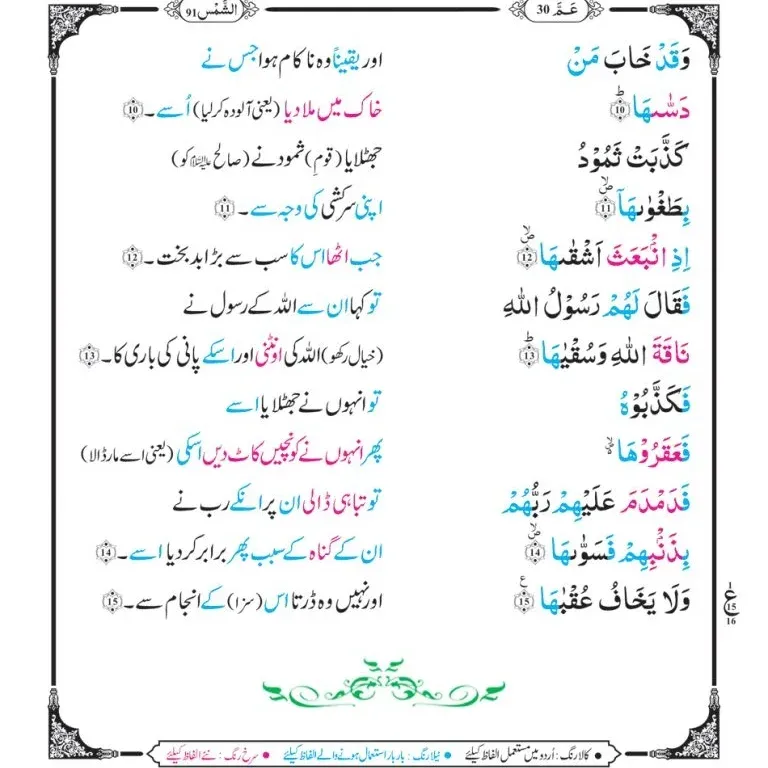 عَمَّ 30 الشَّمْس 91
وَقَدْ خَابَ مَنْ اور یقیناً وہ ناکام ہوا جس نے
دَسّٰىهَا ۟ؕ 10 خاک میں ملا دیا (یعنی آلودہ کر لیا) اُسے۔ 10
كَذَّبَتْ ثَمُوْدُ جھٹلایا (قومِ) ثمود نے (صالح علیہ السلام کو)
بِطَغْوٰىهَاۤ ۪ۙ 11 اپنی سرکشی کی وجہ سے۔ 11
اِذِ انْۢبَعَثَ اَشْقٰىهَا ۪ۙ 12 جب اٹھا اس کا سب سے بڑا بدبخت۔ 12
فَقَالَ لَهُمْ رَسُوْلُ اللهِ تو کہا ان سے اللہ کے رسول نے
نَاقَةَ اللهِ وَسُقْيٰهَا ؕ 13 (خیال رکھو) اللہ کی اونٹنی اور اسکے پانی کی باری کا۔ 13
فَكَذَّبُوْهُ تو انہوں نے جھٹلایا اسے
فَعَقَرُوْهَا ۪ۙ پھر انہوں نے کونچیں کاٹ دیں اسکی (یعنی اسے مار ڈالا)
فَدَمْدَمَ عَلَيْهِمْ رَبُّهُمْ تو تباہی ڈالی ان پر انکے رب نے
بِذَنْۢبِهِمْ فَسَوّٰىهَا ۪ۙ 14 ان کے گناہ کے سبب پھر برابر کر دیا اسے۔ 14
وَلَا يَخَافُ عُقْبٰهَا ۠ 15 اور نہیں وہ ڈرتا اس (سزا) کے انجام سے۔ 15
ع 15 16
• کالا رنگ : اُردو میں مستعمل الفاظ کیلئے • نیلا رنگ : بار بار استعمال ہونے والے الفاظ کیلئے • سرخ رنگ : نئے الفاظ کیلئے